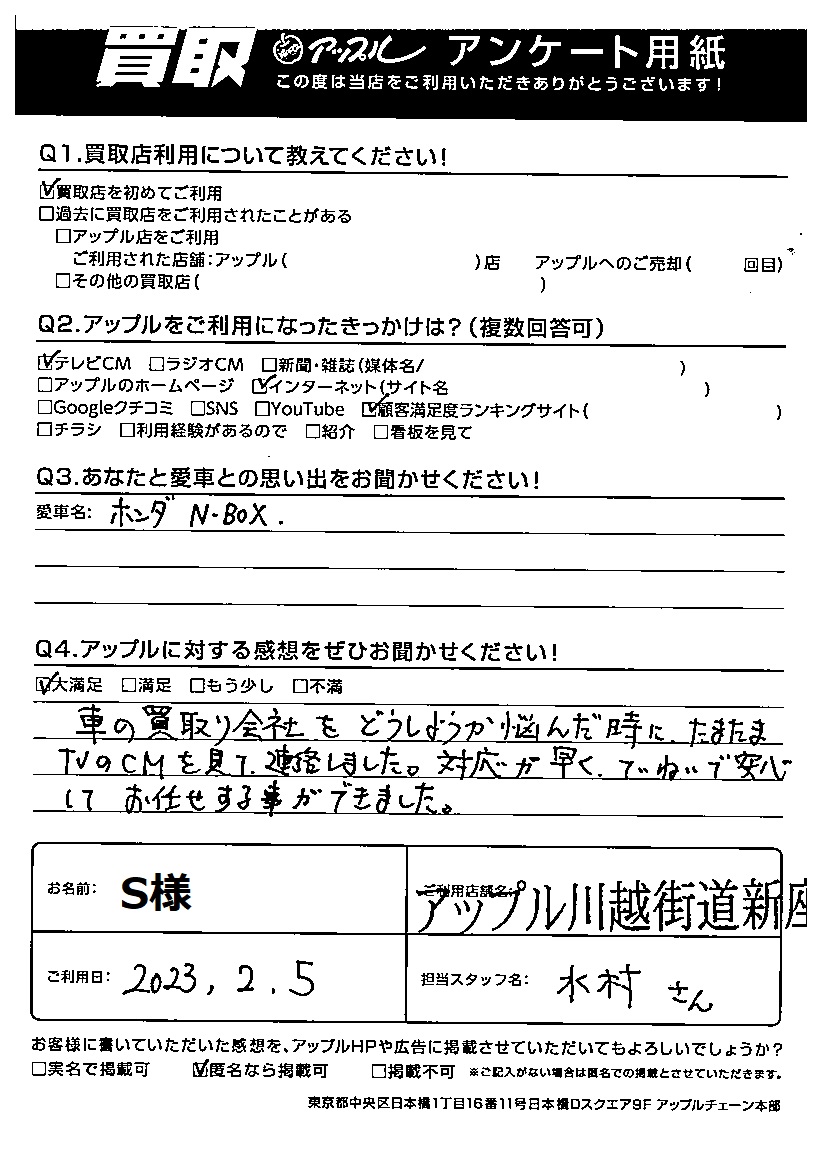 買取 アップル アンケート用紙
この度は当店をご利用いただきありがとうございます！
Q1.買取店利用について教えてください！
☑買取店を初めてご利用
□過去に買取店をご利用されたことがある
□アップル店をご利用
ご利用された店舗:アップル( )店 アップルへのご売却( 回目)
□その他の買取店( )
Q2.アップルをご利用になったきっかけは？(複数回答可)
☑テレビCM □ラジオCM □新聞・雑誌(媒体名/ )
□アップルのホームページ ☑インターネット(サイト名 )
□Googleクチコミ □SNS □YouTube ☑顧客満足度ランキングサイト( )
□チラシ □利用経験があるので □紹介 □看板を見て
Q3.あなたと愛車との思い出をお聞かせください！
愛車名: ホンダ N-BOX.
Q4.アップルに対する感想をぜひお聞かせください！
☑大満足 □満足 □もう少し □不満
車の買取り会社をどうしようか悩んだ時に、たまたま
TVのCMを見て、連絡しました。対応が早く、ていねいで安心
して お任せする事ができました。
お名前: S様 ご利用店舗名: アップル川越街道新座
ご利用日: 2023, 2. 5 担当スタッフ名: 水村 さん
お客様に書いていただいた感想を、アップルHPや広告に掲載させていただいてもよろしいでしょうか？
□実名で掲載可 ☑匿名なら掲載可 □掲載不可 ※ご記入がない場合は匿名での掲載とさせていただきます。
東京都中央区日本橋1丁目16番11号日本橋Dスクエア9F アップルチェーン本部